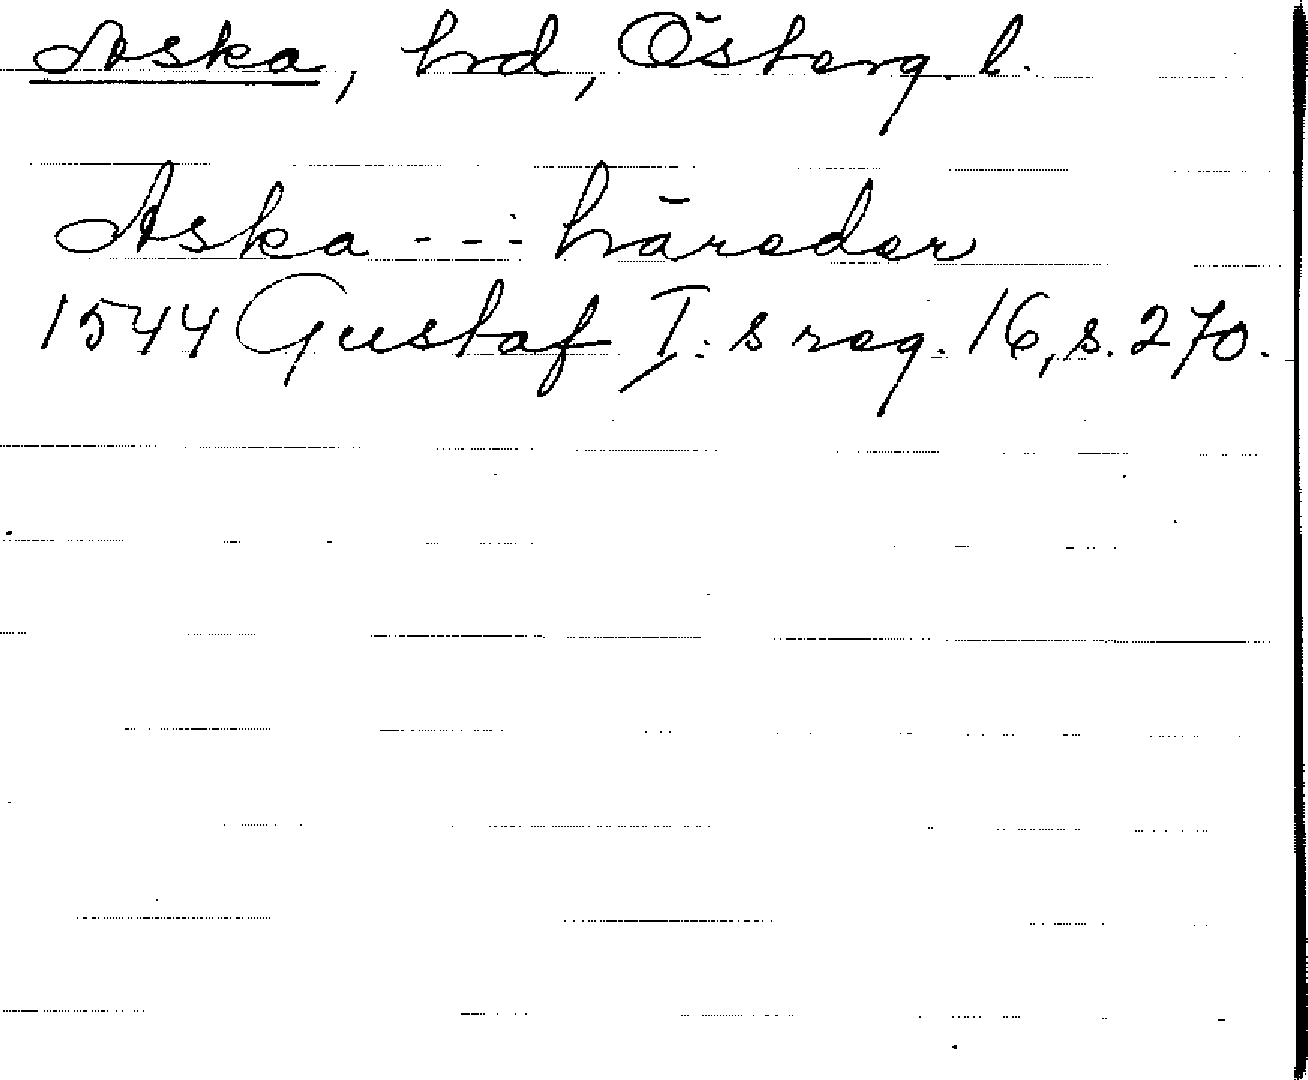 Aska, hrd, Österg. l.
Aska --- häreder
1544 Gustaf I:s reg. 16, s. 270.